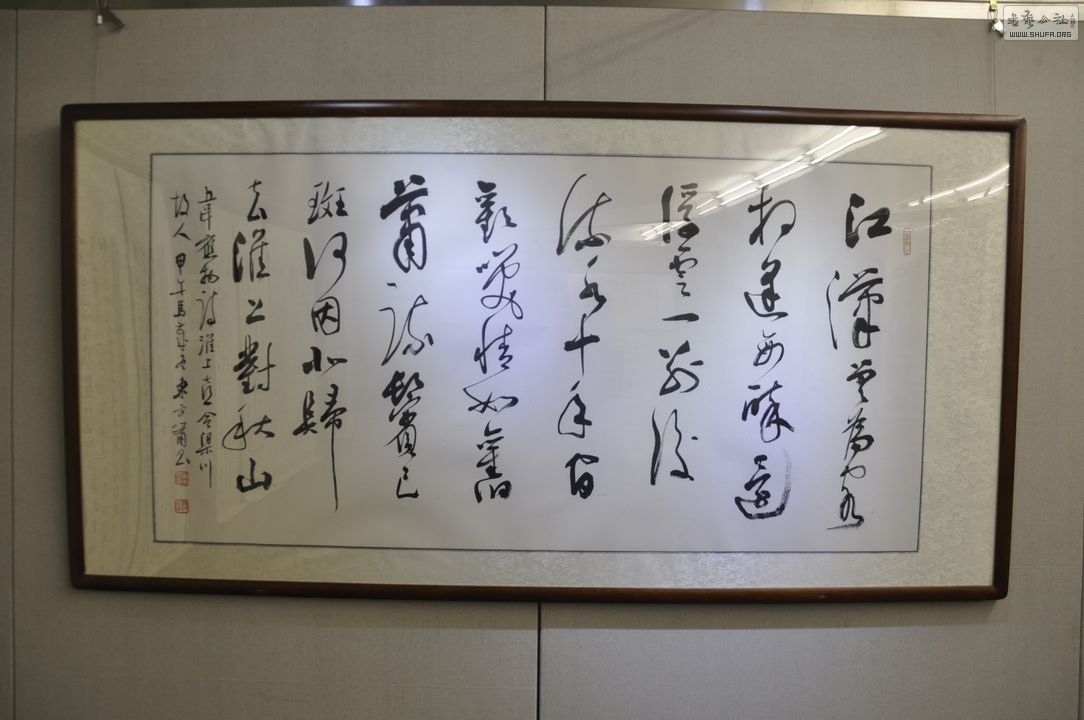 江漢曾為客
相逢每醉還
浮雲一別後
流水十年間
歡笑情如舊
蕭疏鬢已
斑何因北歸
去淮上對秋山
韋應物詩淮上喜會梁川
故人甲午馬歲東方
書藝公社
WWW.SHUFA.ORG